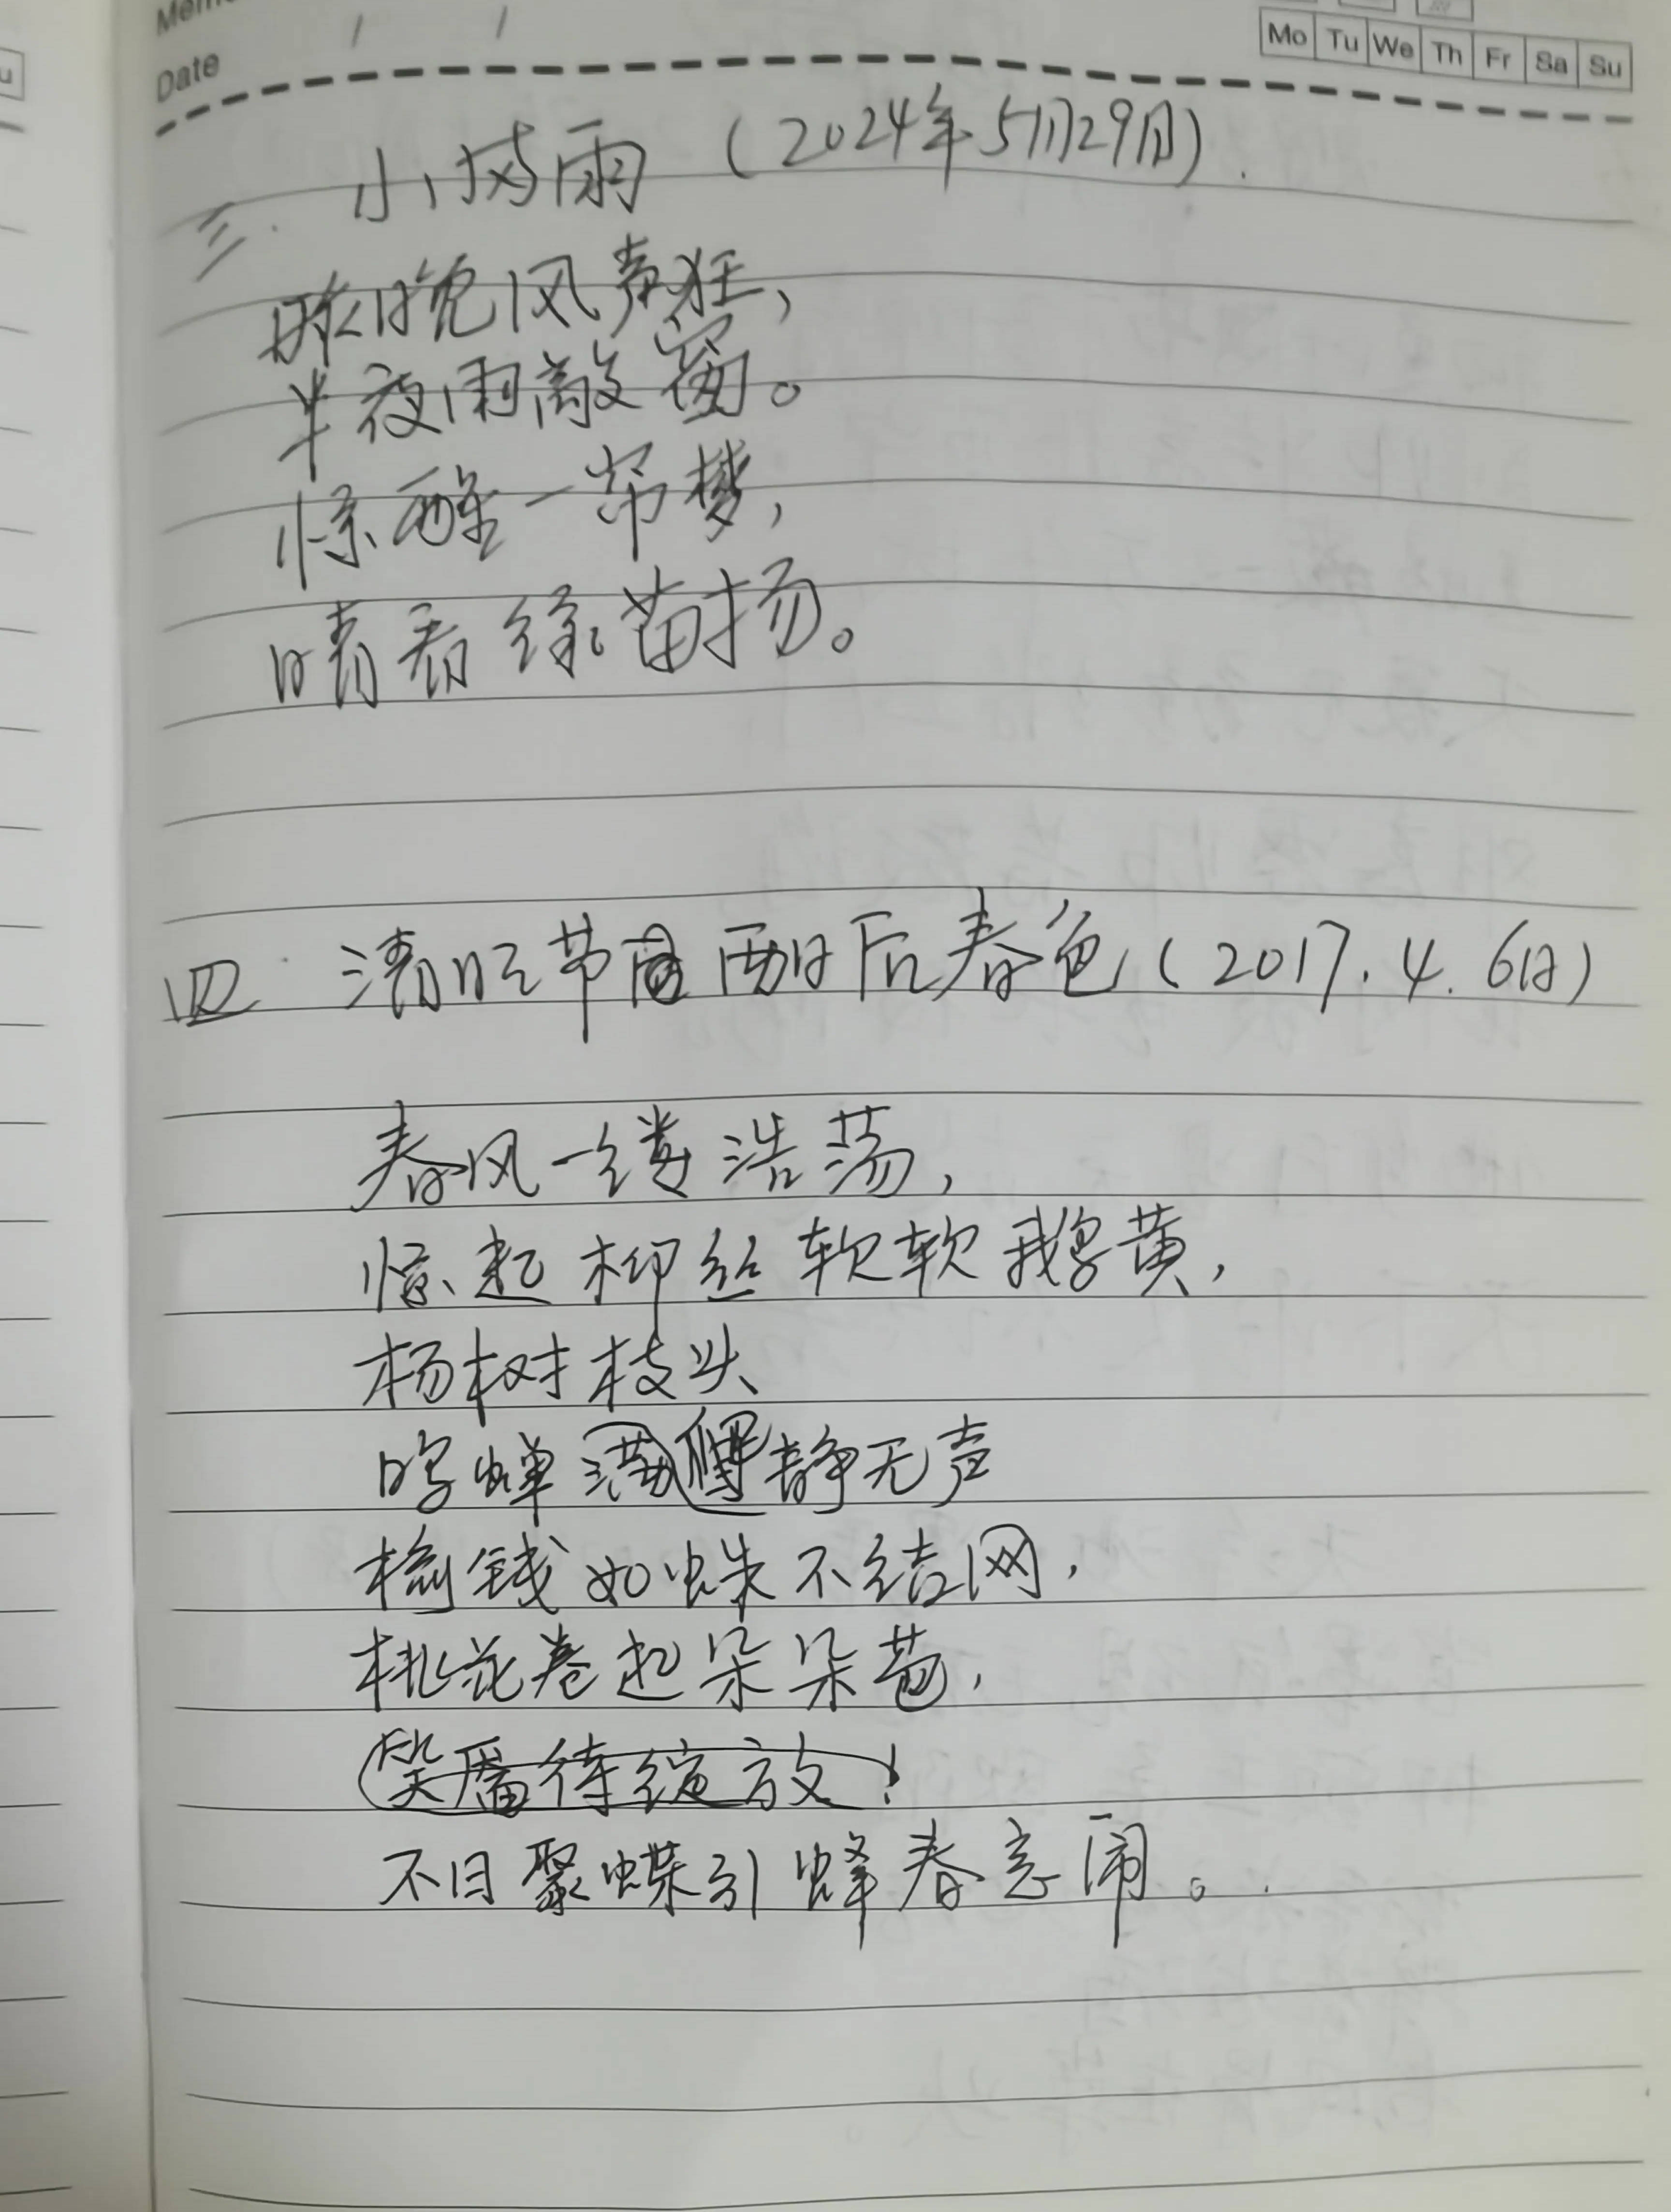 Date / /
Mo Tu We Th Fr Sa Su
三. 小风雨 (2024年5月29日).
昨晚风声狂,
半夜雨敲窗。
惊醒一帘梦,
晴看绿苗扬。
四. 清明节雨后春色 (2017.4.6日)
春风一缕浩荡,
惊起柳丝软软鹅黄,
杨树枝头
鸣蝉满静无声
榆钱如蛛不结网,
桃花卷起朵朵苞,
笑靥待绽放!
不日聚蝶引蜂春意闹。